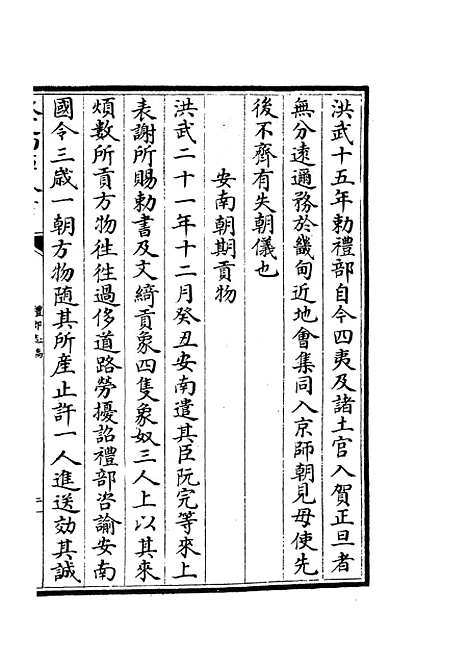 洪武十五年勅禮部自今四夷及諸土官入賀正旦者
無分遠邇務於畿甸近地會集同入京師朝見毋使先
後不齊有失朝儀也
安南朝期貢物
洪武二十一年十二月癸丑安南遣其臣阮完等來上
表謝所賜勅書及文綺貢象四隻象奴三人上以其來
煩數所貢方物徃徃過侈道路勞擾詔禮部咨諭安南
國令三歲一朝方物隨其所產止許一人進送效其誠
禮部志稿